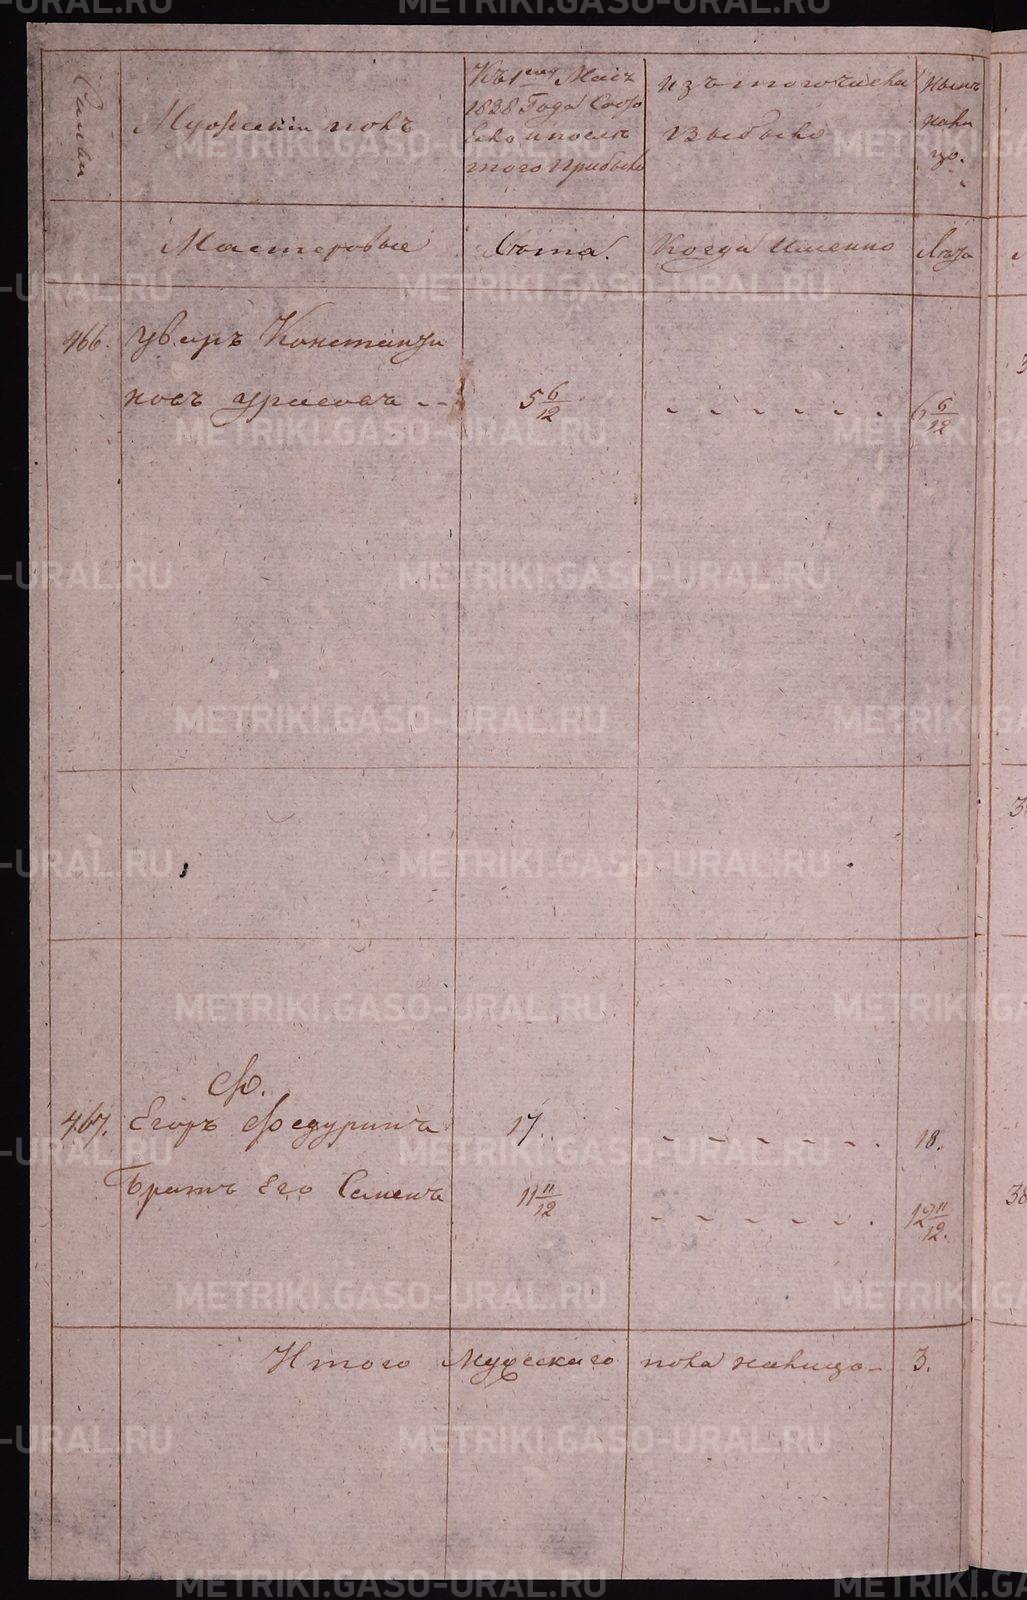 Семьи
Мужескiй полъ
Къ 1 ему Маiя
1838 Года Состо
яло и после
того прибыло
Изъ того числа
Выбыло
Нынѣ
нали
цо.
Мастеровые
Лѣта.
Когда Именно
Лѣта
466.
Уваръ Константи
новъ
5 6/12
6 6/12
Ф.
467. Егоръ Федуринъ
17.
18.
Братъ Его Семенъ
11 11/12
12 11/12.
Итого Мужескаго пола налицо
3.
METRIKI.GASO-URAL.RU